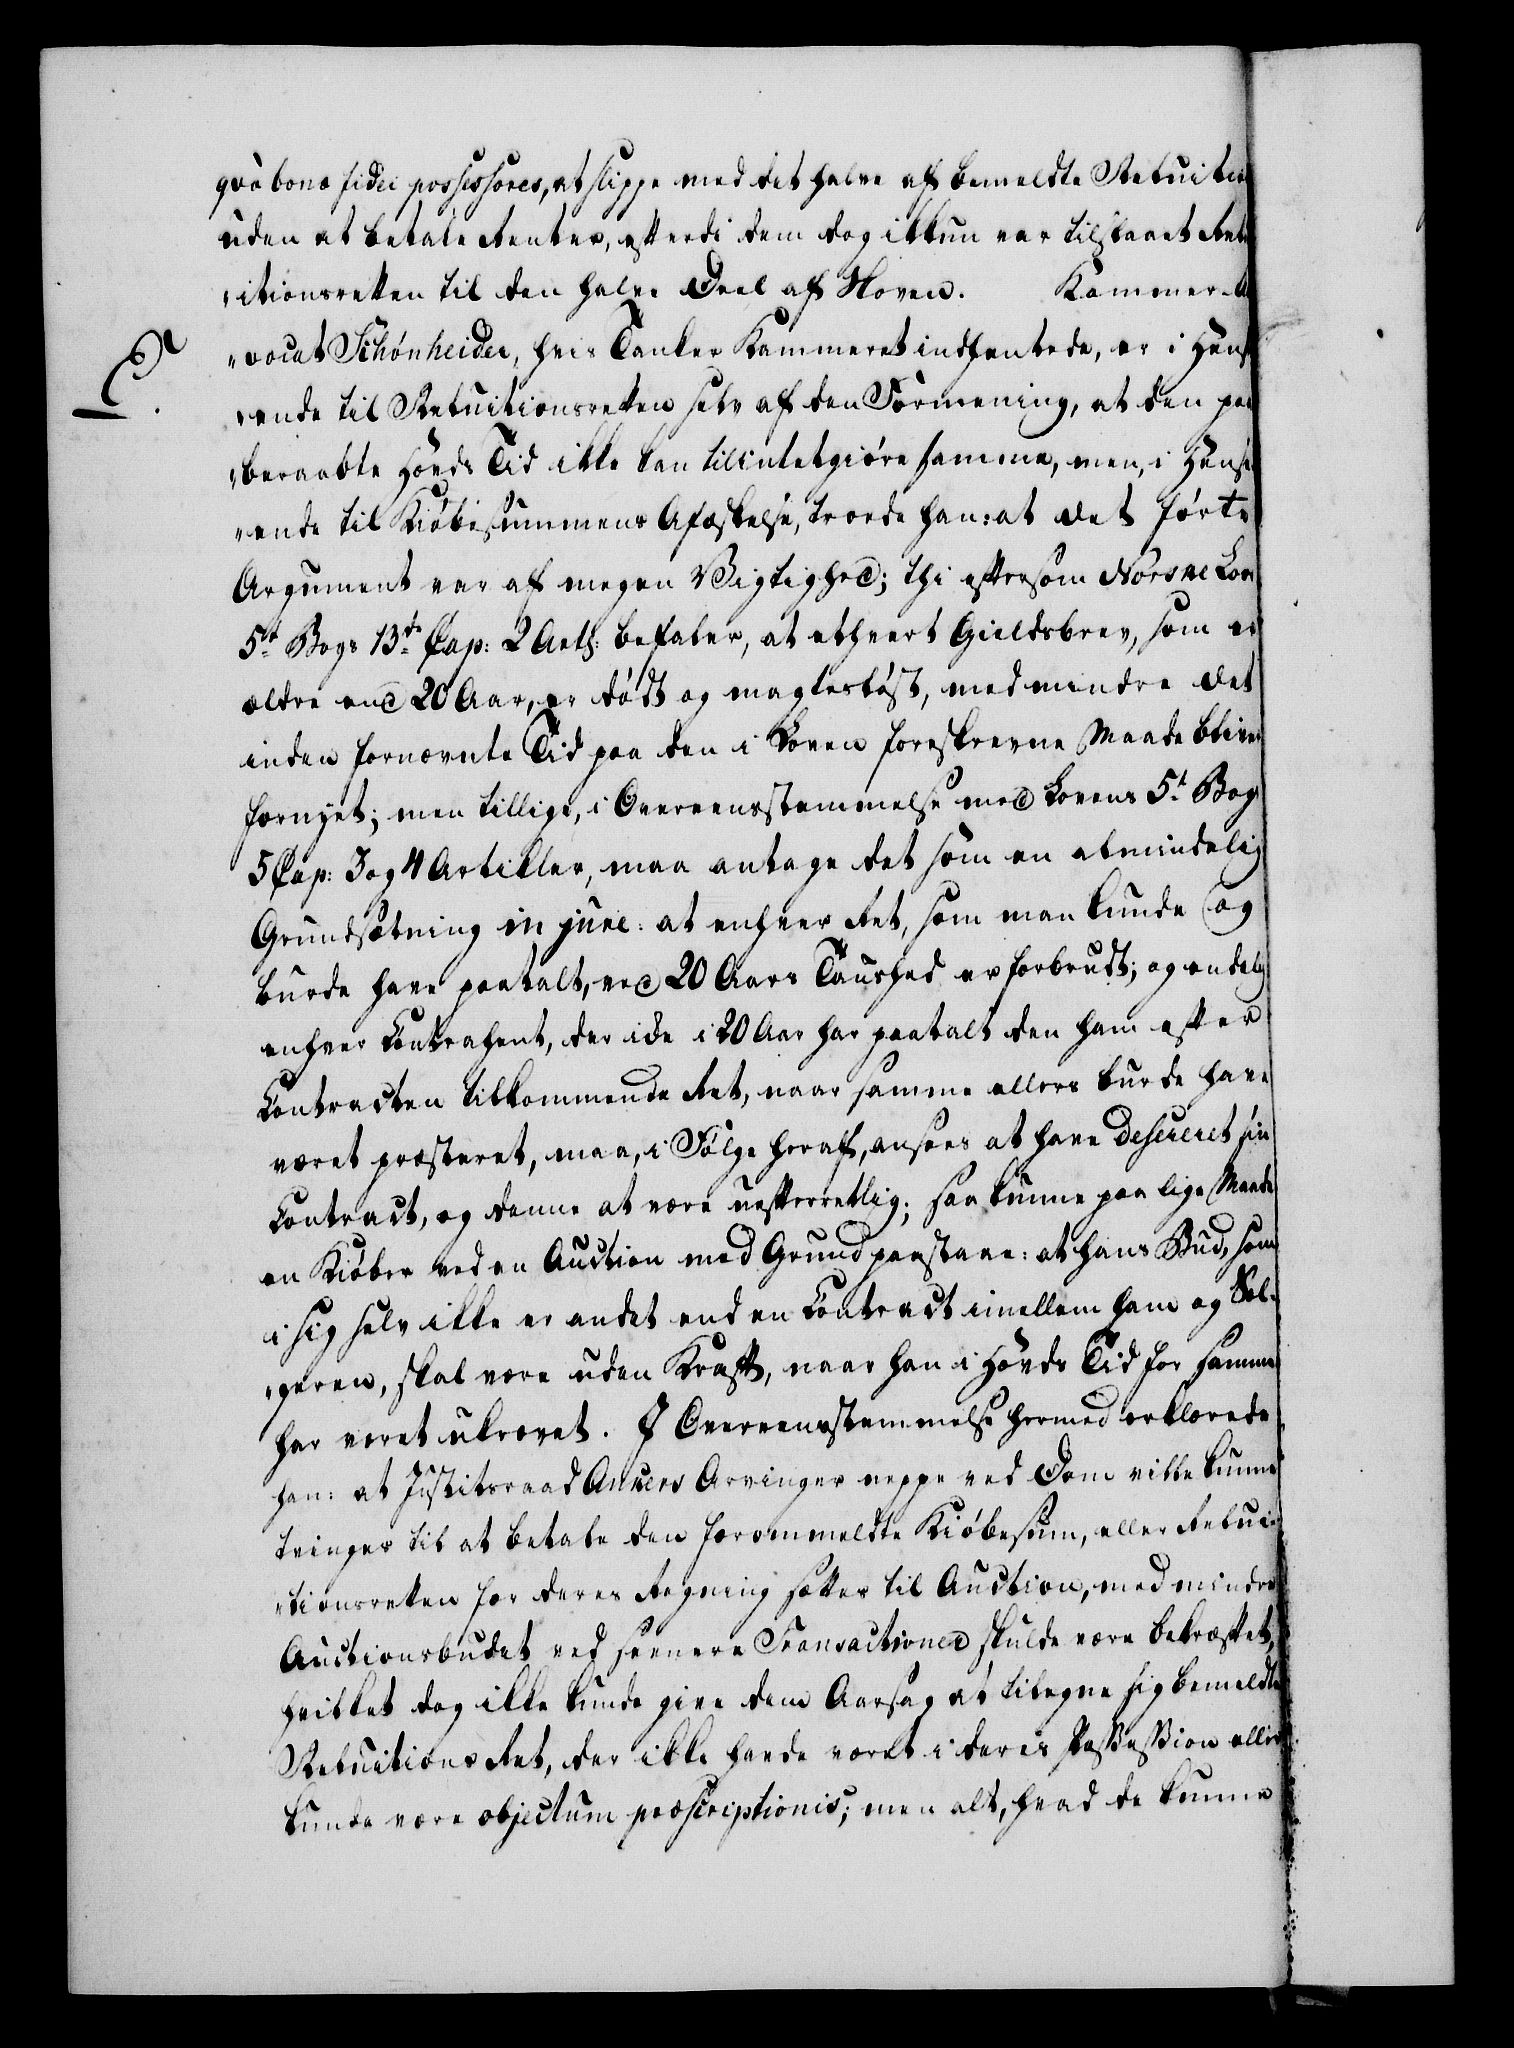 qvà bonæ fidei possessores, at slippe med det halve af bemeldte Reluition
uden at betale Renter, efterdi dem dog ikkun var tilstaaet Relu
itionsretten til den halve Deel af Skoven. Kammer-Ad
vocat Schønheider, hvis Tanker Kammeret indhentede, er i Hense
ende til Reluitionsretten selv af den Formening, at den paa
beraabte Hævds Tid ikke kan tilintetgiøre samme, men, i Hense
ende til Kiøbesummens Afæskelse, troede han: at det førte
Argument var af megen Vigtighed; thi eftersom Norske Lovs
5te Bogs 13de Cap: 2 Art: befaler, at ethvert Gieldsbrev, som er
ældre end 20 Aar, er dødt og magtesløst, med mindre det
inden fornævnte Tid paa den i Loven foreskrevne Maade bliver
fornyet; men tillige, i Overeensstemmelse med Lovens 5te Bogs
5 Cap: 3 og 4 Artikler, maa antage det som en almindelig
Grundsætning in jure: at enhver Ret, som man kunde og
burde have paatalt, ved 20 Aars Taushed er forbrudt; og endelig
enhver Contrahent, der icke i 20 Aar har paatalt den ham efter
Contracten tilkommende Ret, naar samme ellers burde have
været præsteret, maa, i Følge heraf, ansees at have desereret sin
Contract, og denne at være uefterrettlig; saa kunne paa lige Maade
en Kiøber ved en Auction med Grund paastaae: at hans Bud, som
i sig selv ikke er andet end en Contract imellem ham og Sæl-
geren, skal være uden Kraft, naar han i Hævds Tid for samme
har været ukrævet. I Overeensstemmelse hermed erklærede
han: at Justitsraad Ankers Arvinger neppe ved Dom ville kunne
tvinges til at betale den forommeldte Kiøbesum, eller Relui-
tionsretten for deres Regning sættes til Auction, med mindre
Auctionsbudet ved seenere Transactioner skulde være bekræftet,
hvilket dog ikke kunde give dem Aarsag at tilegne sig bemeldte
Reluitions Ret, der ikke havde været i deres Possession eller
kunde være objectum præscriptionis; men alt, hvad de kunne